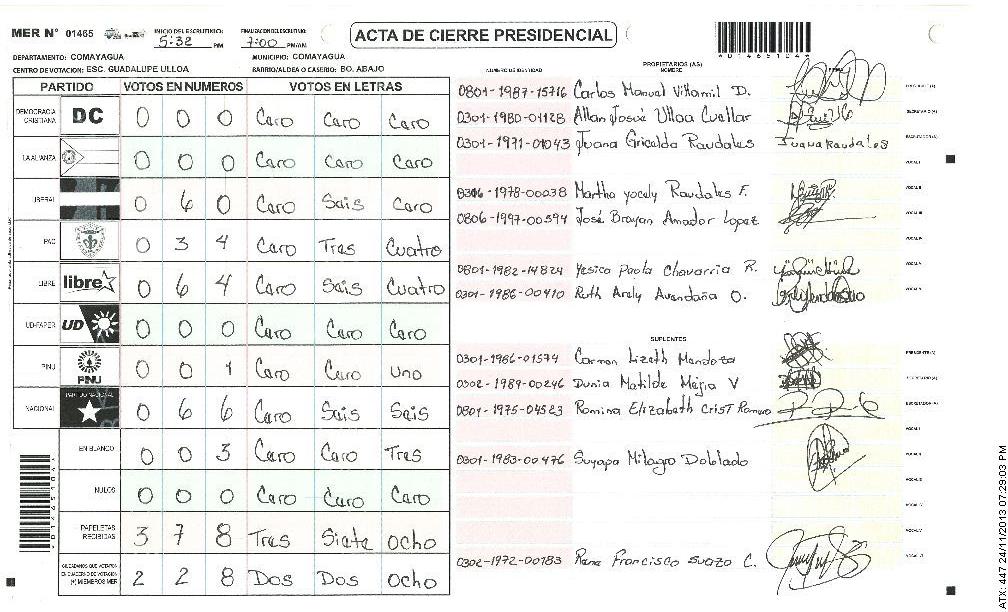 MER N° 01465
INICIO DEL ESCRUTINIO: 5:32 PM
FINALIZACION ESCRUTINIO: 7:00 PM/AM
ACTA DE CIERRE PRESIDENCIAL
DEPARTAMENTO: COMAYAGUA
MUNICIPIO: COMAYAGUA
CENTRO DE VOTACION: ESC. GUADALUPE ULLOA
BARRIO/ALDEA O CASERIO: BO. ABAJO
PARTIDO VOTOS EN NUMEROS VOTOS EN LETRAS
DEMOCRACIA CRISTIANA DC 0 0 0 Caro Caro Caro
LA ALIANZA 0 0 0 Caro Caro Caro
LIBERAL 0 6 0 Caro Sais Caro
PAC 0 3 4 Caro Tras Cuatro
LIBRE libre 0 6 4 Caro Sais Cuatro
UD-FAPER UD 0 0 0 Caro Caro Caro
PINU PINU 0 0 1 Caro Caro uno
NACIONAL PARTIDO NACIONAL 0 6 6 Caro Sais Sais
EN BLANCO 0 0 3 Caro Caro Tras
NULOS 0 0 0 Caro Caro Caro
PAPELETAS RECIBIDAS 3 7 8 Tras Siata ocho
CIUDADANOS QUE VOTARON EN CUADERNO DE VOTACION (+) MIEMBROS MER 2 2 8 Dos Dos ocho
NUMERO DE IDENTIDAD
PROPIETARIOS (AS)
NOMBRE
0801-1987-15716 Carlos Manual Villamil D.
0301-1980-01128 Allan Josué Ulloa Cuellar
0301-1971-01043 Juana Gricelda Raudales Juana Raudales
0306-1978-00038 Martha yocely Raudales F.
0806-1997-00394 José Brayan Amador Lopez
0801-1982-14824 Yesica Paola Chavarria R.
0301-1986-00410 Ruth Araly Avendaña O.
SUPLENTES
0301-1986-01574 Carman Lizeth Mendoza
0302-1989-00246 Dunia Matilde Mejia V
0801-1975-04523 Romina Elizabeth Crist Romero
0301-1983-00476 Suyapa Milagro Doblado
0302-1972-00783 Rene Francisco Suazo C.
PRESIDENTE (A)
SECRETARIO (A)
ESCRUTADOR (A)
VOCAL I
VOCAL II
VOCAL III
VOCAL IV
VOCAL V
ATX: 447 24/11/2013 07:29:03 PM